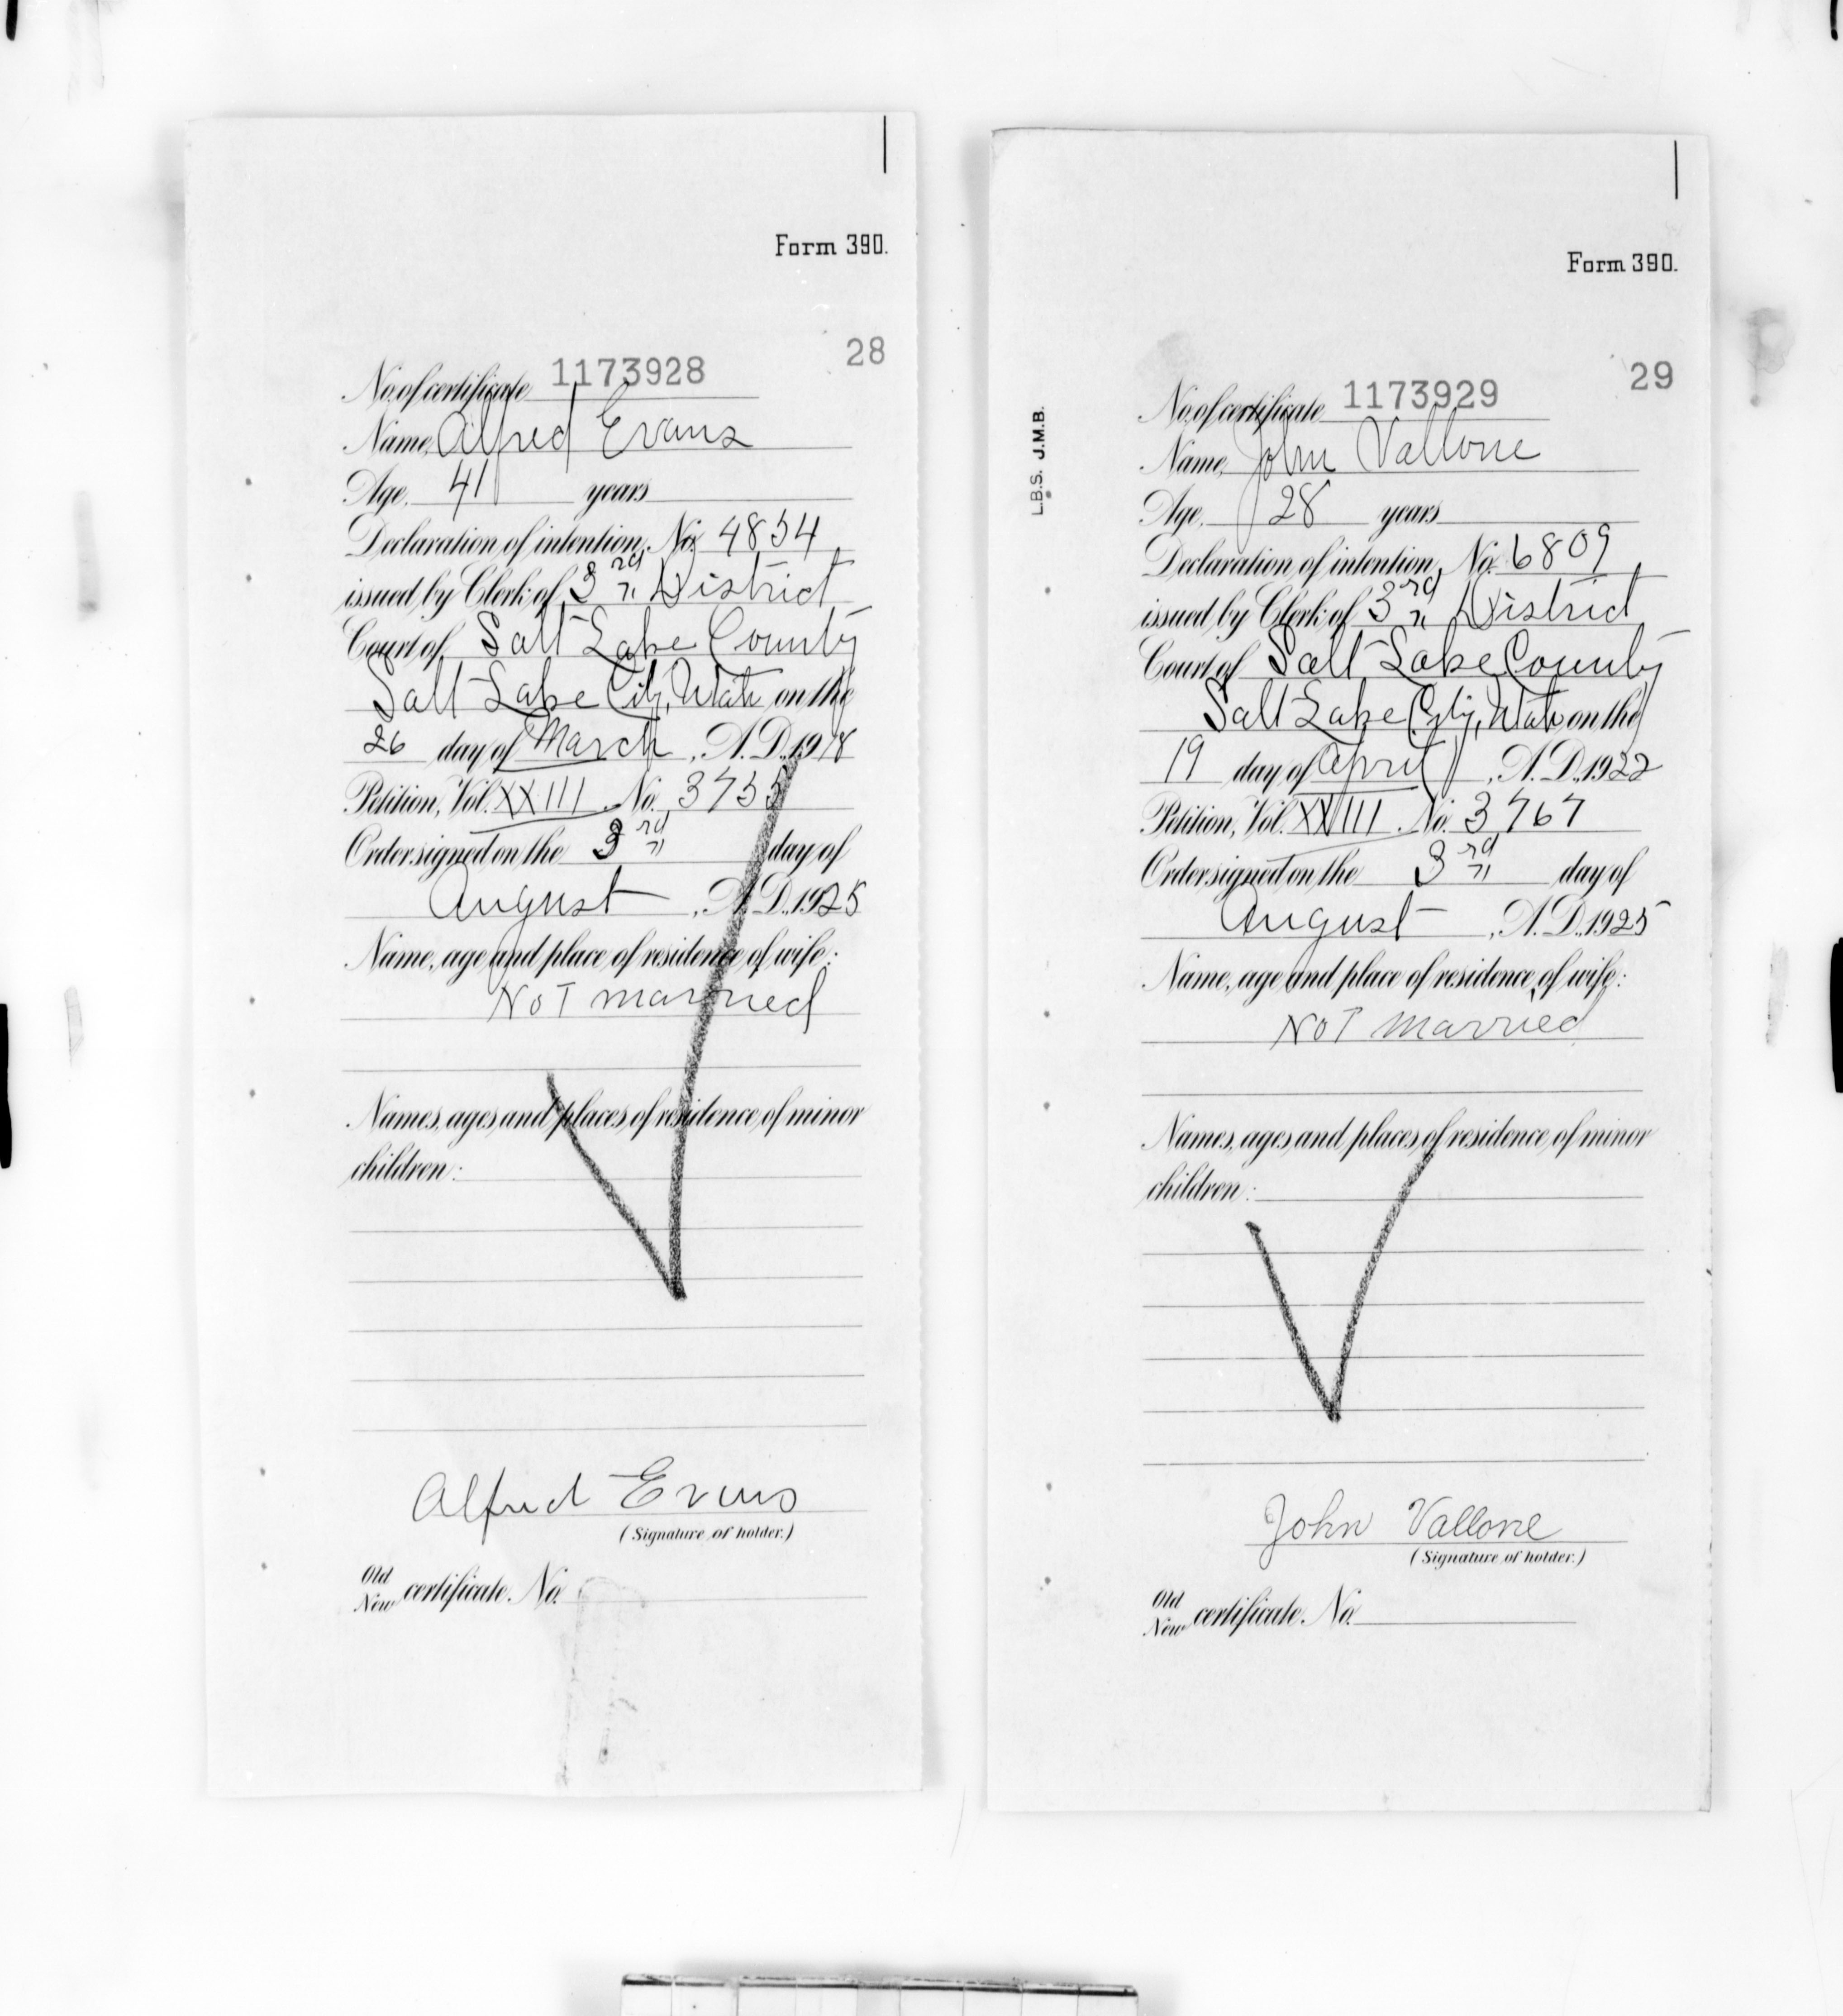 Form 390.
28
No. of certificate 1173928
Name, Alfred Evans
Age, 41 years
Declaration of intention, No. 4854
issued by Clerk of 3rd District
Court of Salt Lake County
Salt Lake City, Utah on the
26 day of March, A.D., 1918
Petition, Vol. XXIII. No. 3755
Order signed on the 3rd day of
August, A.D., 1925
Name, age and place of residence of wife:
Not married
Names, ages and places of residence of minor
children:
Alfred Evans
(Signature of holder.)
Old
New certificate. No.
Form 390.
L.B.S. J.M.B.
29
No. of certificate 1173929
Name, John Vallone
Age, 28 years
Declaration of intention, No. 6809
issued by Clerk of 3rd District
Court of Salt Lake County
Salt Lake City, Utah on the
19 day of April, A.D., 1922
Petition, Vol. XXIII. No. 3767
Order signed on the 3rd day of
August, A.D., 1925
Name, age and place of residence, of wife:
Not Married
Names, ages and places of residence of minor
children:
John Vallone
(Signature of holder.)
Old
New certificate. No.